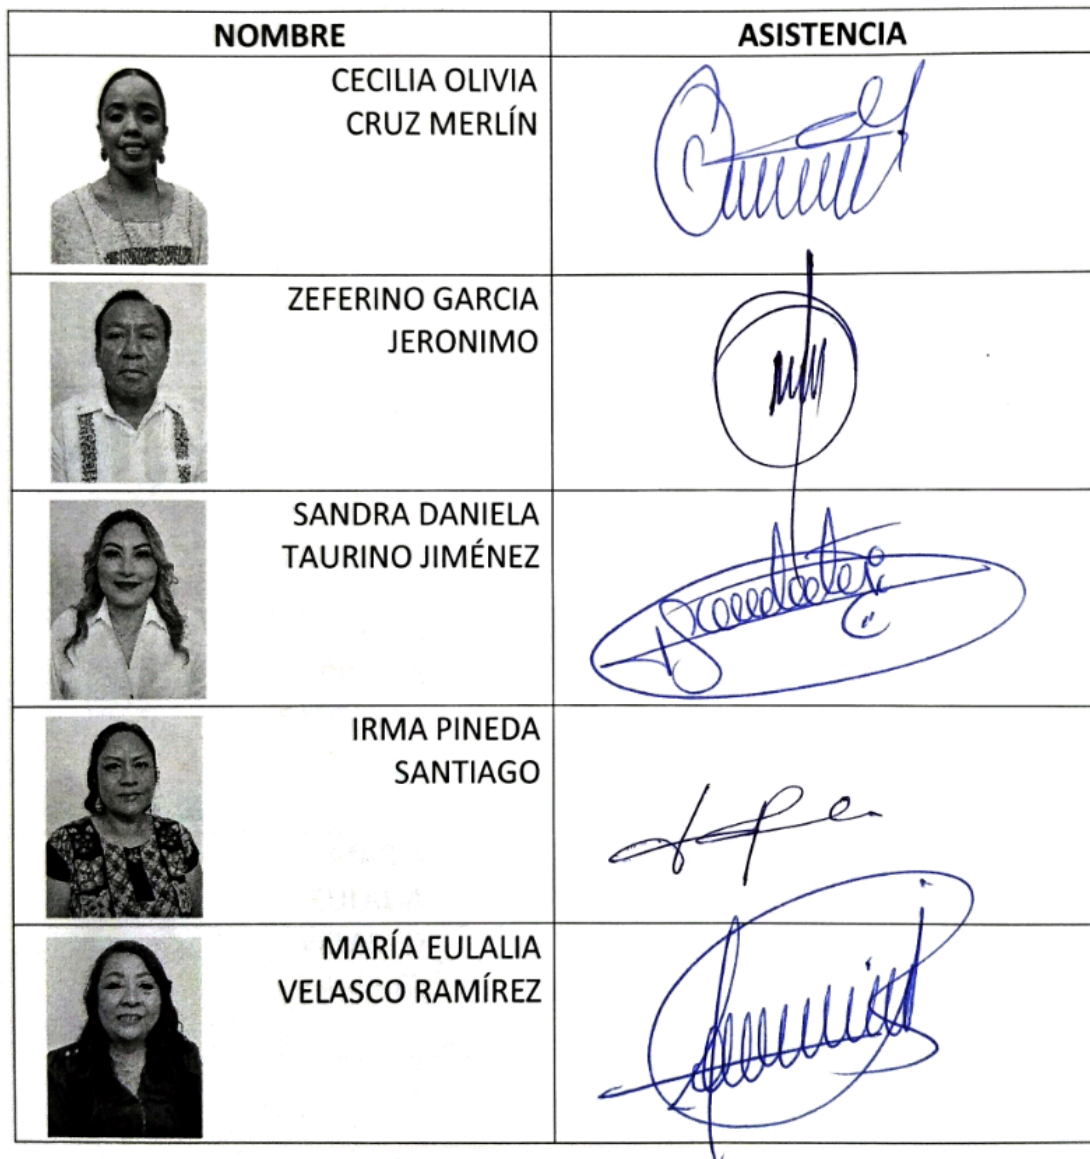 NOMBRE
ASISTENCIA
CECILIA OLIVIA
CRUZ MERLÍN
ZEFERINO GARCIA
JERONIMO
SANDRA DANIELA
TAURINO JIMÉNEZ
IRMA PINEDA
SANTIAGO
MARÍA EULALIA
VELASCO RAMÍREZ